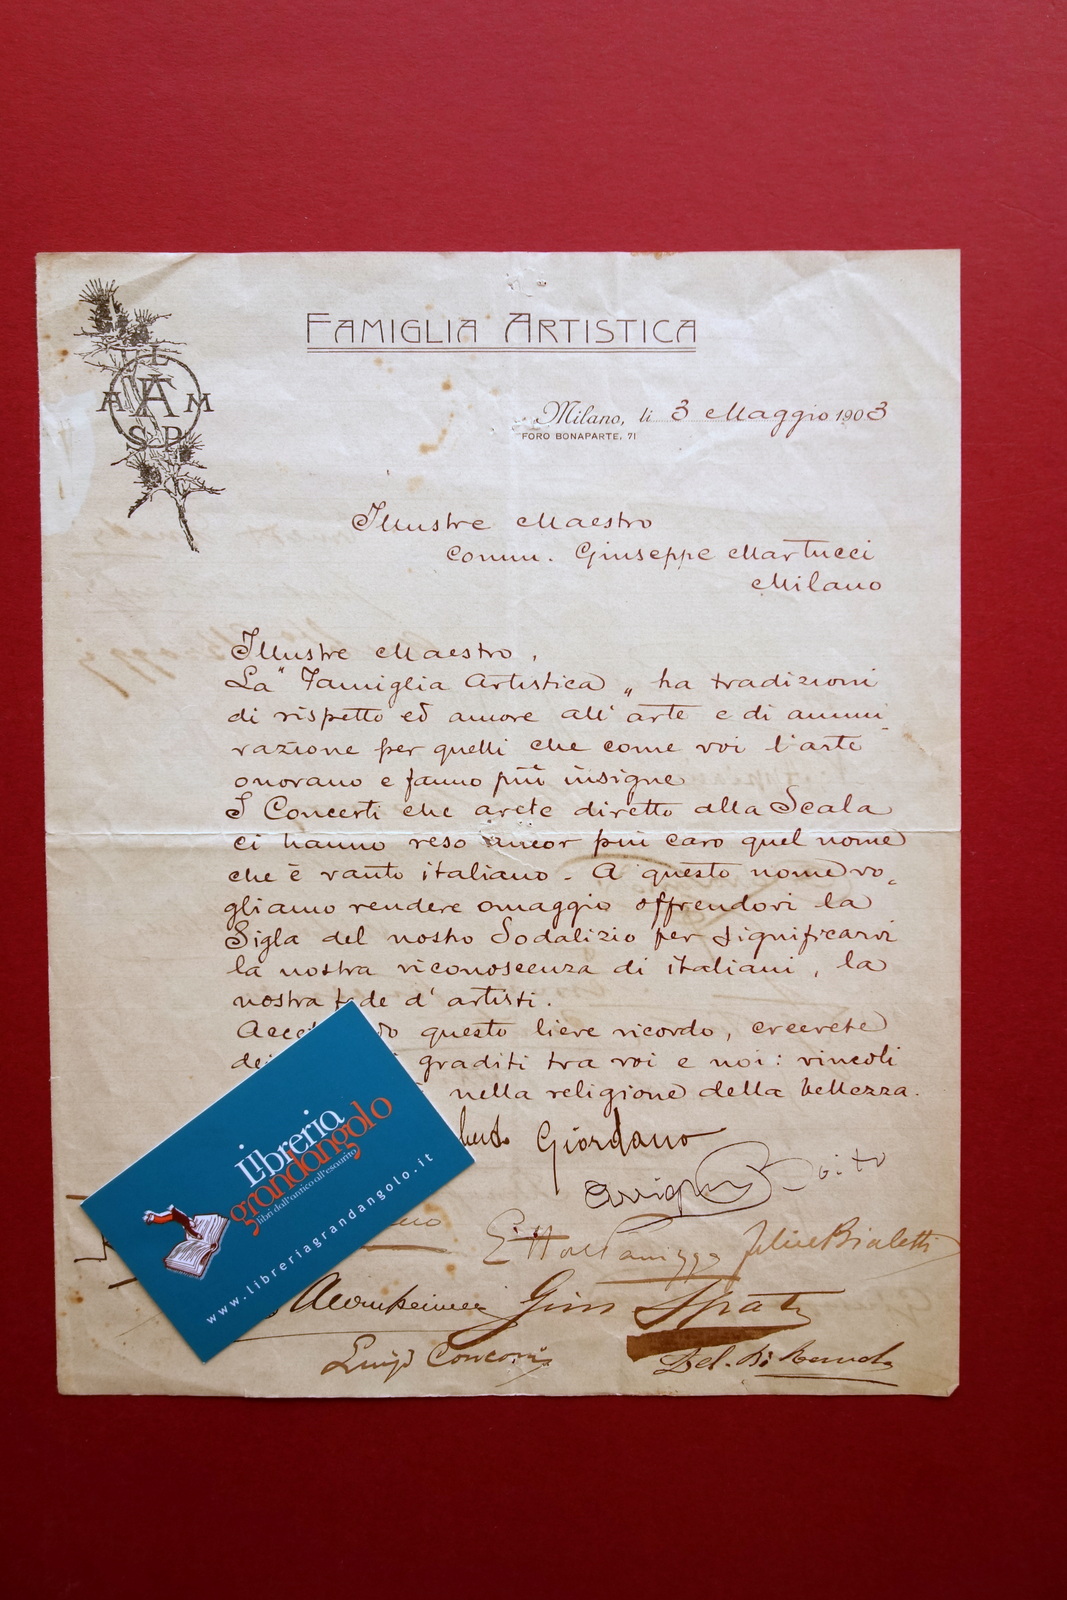 FAMIGLIA ARTISTICA
A F A M
S P
Milano, li 3 Maggio 1903
FORO BONAPARTE, 71
Illustre Maestro
Comm. Giuseppe Martucci
Milano
Illustre Maestro,
La "Famiglia Artistica" ha tradizioni
di rispetto ed amore all'arte e di ammi-
razione per quelli che come voi l'arte
onorano e fanno più insigne
I Concerti che avete diretto alla Scala
ci hanno reso ancor più caro quel nome
che è vanto italiano. A questo nome vo-
gliamo rendere omaggio offrendovi la
Sigla del nostro Sodalizio per significarvi
la nostra riconoscenza di italiani, la
nostra fede d'artisti.
questo lieve ricordo, crecrete
graditi tra voi e noi: vincoli
nella religione della bellezza.
Giordano
Arrigo Boito
Ettore
Bialetti
Luigi Conconi
Libreria
grandangolo
libri dall'antico all'esaurito
www.libreriagrandangolo.it